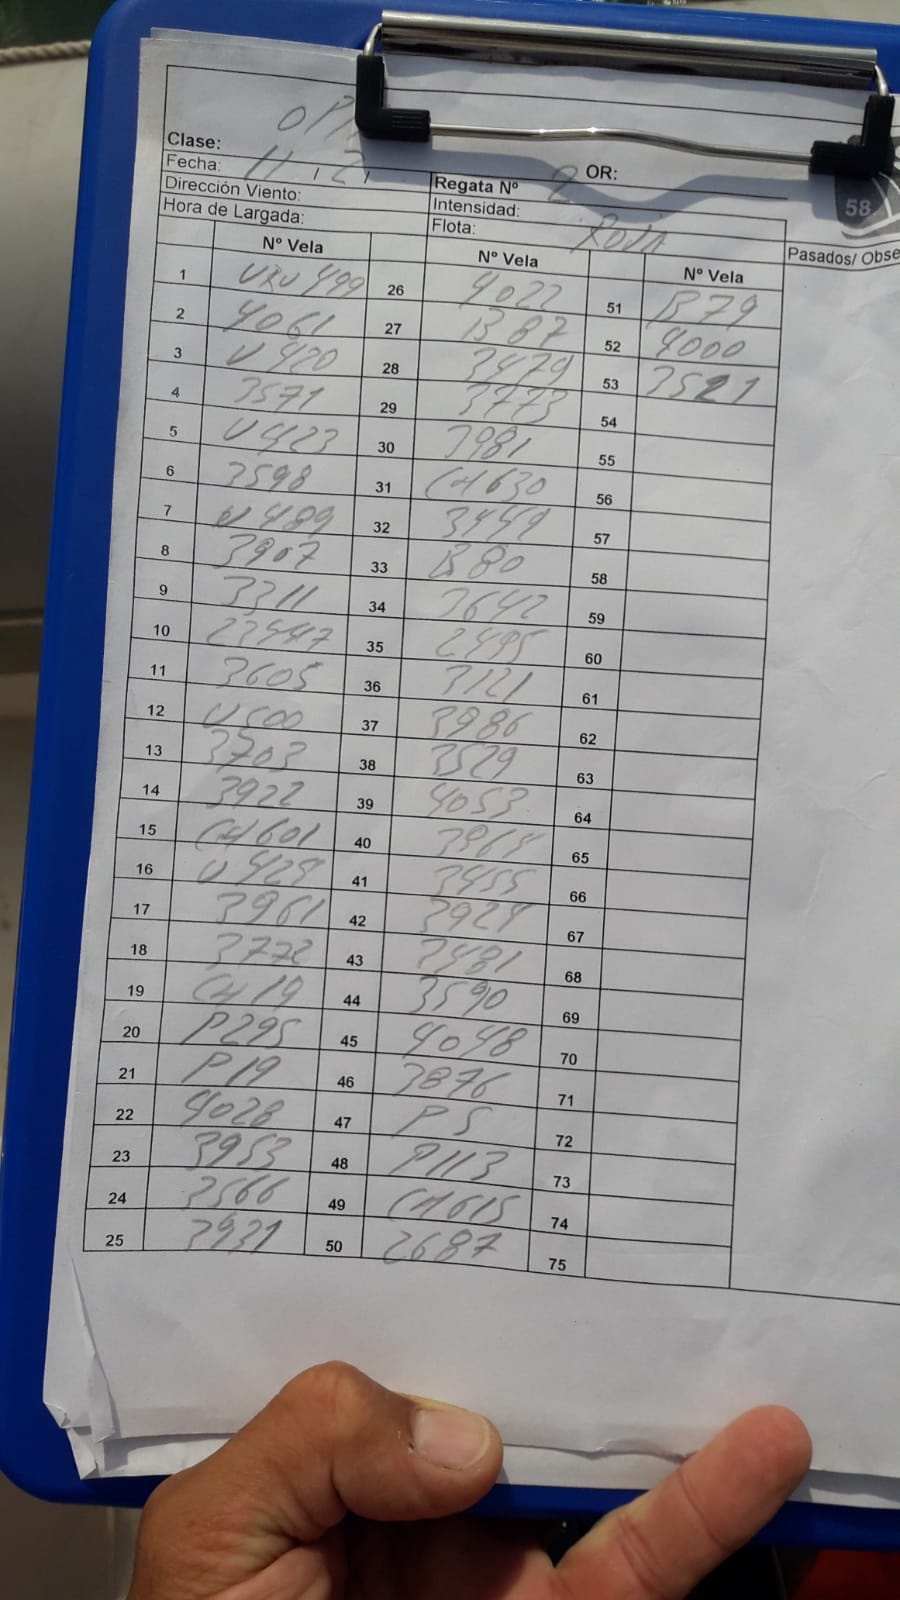 Clase: OP
OR:
Fecha: 11.2.
Regata Nº 2
Dirección Viento:
Intensidad:
Hora de Largada:
Flota: ROJA
58
Nº Vela Nº Vela Nº Vela Pasados/ Obse
1 URU 499 26 4022 51 B 79
2 4061 27 B 87 52 4000
3 U 420 28 3479 53 3521
4 3571 29 3773 54
5 U 423 30 3981 55
6 3598 31 CH 630 56
7 U 489 32 3449 57
8 3907 33 B 80 58
9 3311 34 3642 59
10 35 2495 60
11 3605 36 3121 61
12 U 500 37 3986 62
13 3703 38 3529 63
14 3922 39 4053 64
15 CH 601 40 65
16 U 424 41 3455 66
17 3961 42 3924 67
18 3772 43 3481 68
19 CH 19 44 3590 69
20 P295 45 4048 70
21 P19 46 3876 71
22 4028 47 P 5 72
23 3953 48 P113 73
24 3566 49 CH 615 74
25 3931 50 2687 75